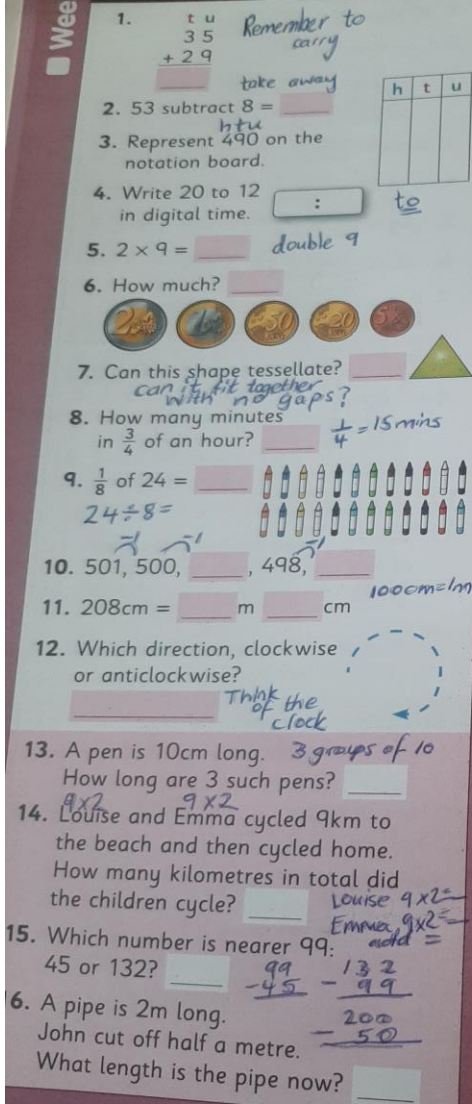 Wee
1. t u
3 5 Remember to
+ 2 9 carry
take away
h t u
2. 53 subtract 8 =
htu
3. Represent 490 on the
notation board.
4. Write 20 to 12 : to
in digital time.
5. 2 × 9 = double 9
6. How much?
7. Can this shape tessellate?
can it fit together
with no gaps?
8. How many minutes
in 3/4 of an hour? 1/4 = 15 mins
9. 1/8 of 24 =
24÷8=
-1 -1 -1
10. 501, 500, , 498,
100cm=1m
11. 208cm = m cm
12. Which direction, clockwise
or anticlockwise?
Think
of the
clock
13. A pen is 10cm long. 3 groups of 10
How long are 3 such pens?
9×2 9×2
14. Louise and Emma cycled 9km to
the beach and then cycled home.
How many kilometres in total did
the children cycle? Louise 9×2=
Emma 9×2=
add =
15. Which number is nearer 99:
45 or 132? 99 132
-45 - 99
6. A pipe is 2m long. 200
John cut off half a metre. - 50
What length is the pipe now?